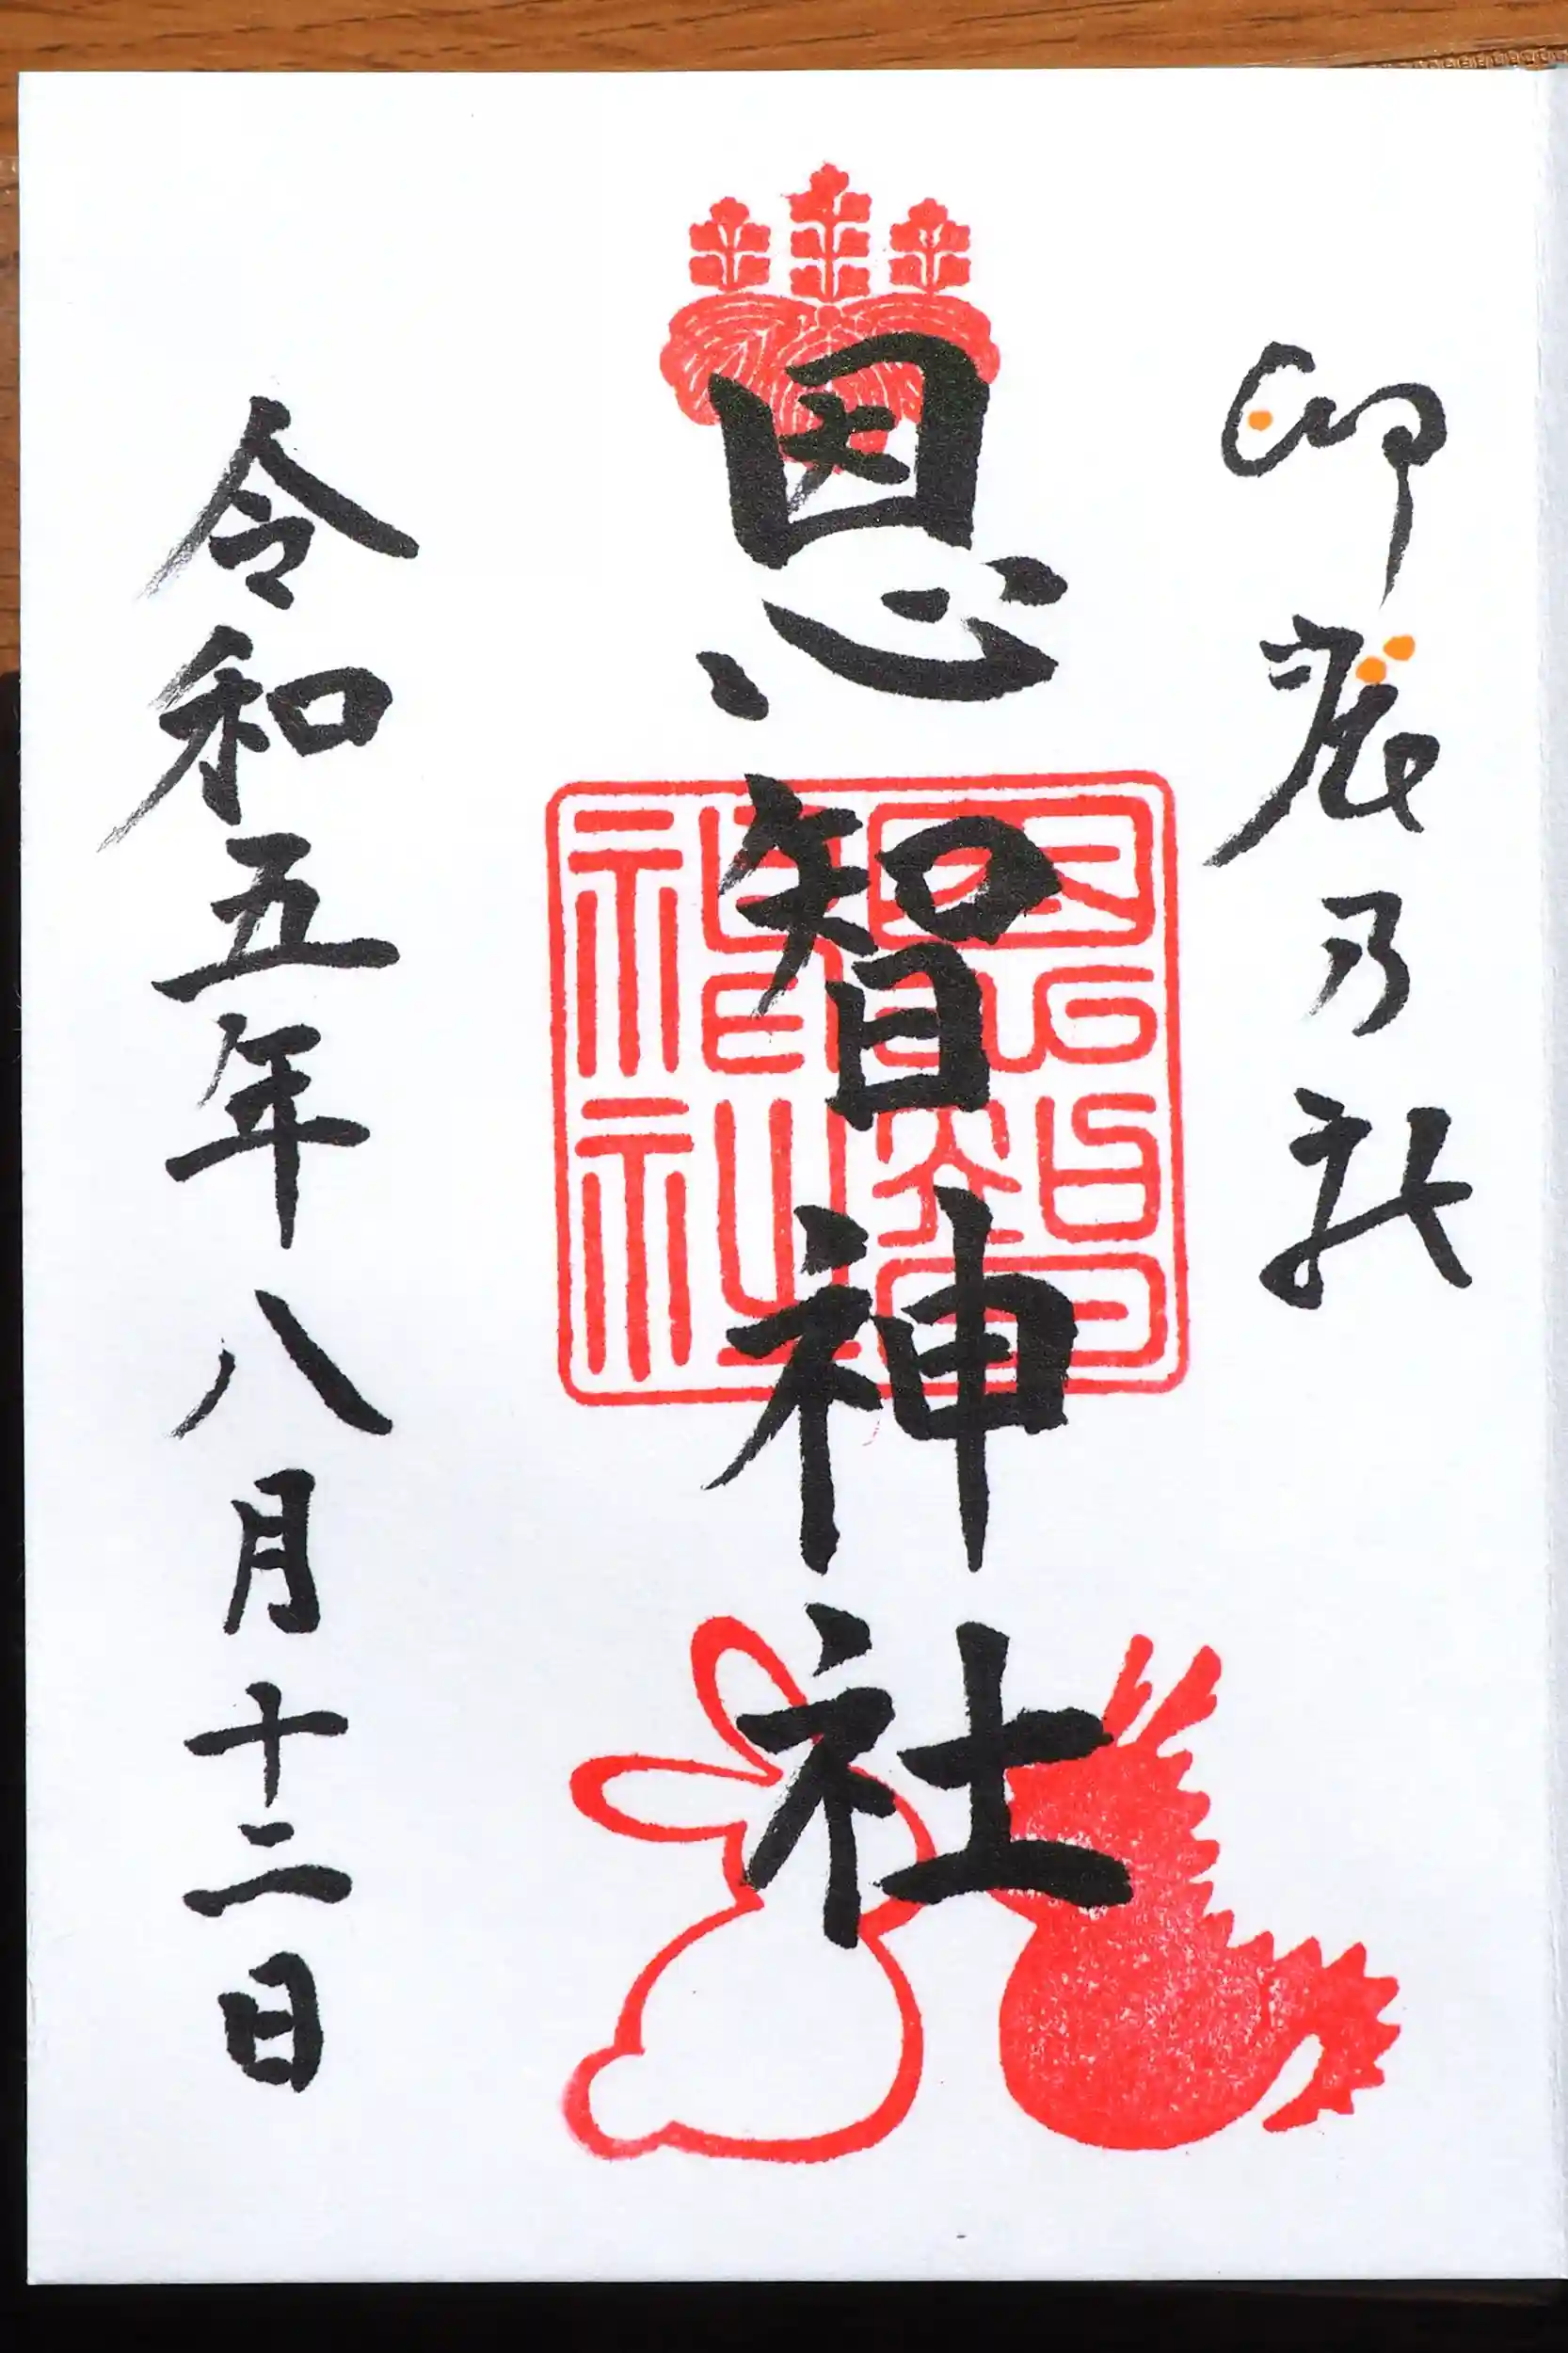 卯辰乃社
恩智神社
恩智
神社
令和五年八月十二日